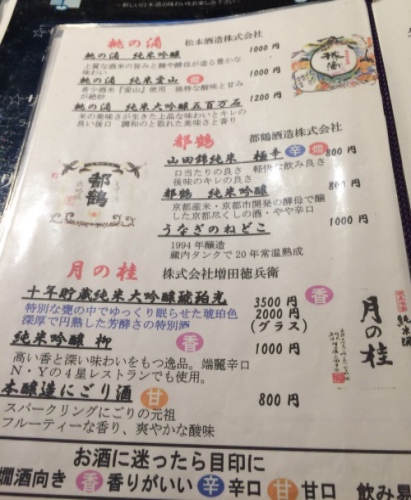 桃の滴 松本酒造株式会社
桃の滴 純米吟醸 1000円
上質な酒米の旨みと麹や酵母が造る豊かな
味わい
桃の滴 純米愛山 1000円
香 酒米「愛山」使用 独特な酸味と甘み
が絶妙
桃の滴 純米大吟醸五百万石 1200円
米の美味さが生きた上品な味わいとキレの
良い後口 調和のと れた美味さと香り
都鶴 都鶴酒造株式会社
山田錦純米 極辛 辛 燗 800円
口当たりの良さ 軽快な飲み良さ
後味のキレの良さ
都鶴 純米吟醸 800円
京都産米・京都市開発の酵母で醸
した京都尽くしの酒・やや辛口
うなぎのねどこ 1000円
1994年醸造
蔵内タンクで20年常温熟成
都鶴
月の桂 株式会社増田徳兵衛
十年貯蔵純米大吟醸琥珀光 香 3500円
特別な甕の中でゆっくり眠らせた琥珀色 2000円
深厚で円熟した芳醇さの特別酒 (グラス)
純米吟醸 柳 香 1000円
高い香と深い味わいをもつ逸品。端麗辛口
N・Yの4星レストランでも使用。
本醸造にごり酒 甘 800円
スパークリングにごりの元祖
フルーティーな香り、爽やかな酸味
月の桂
純米酒
お酒に迷ったら目印に
燗酒向き 香 香りがいい 辛 辛口 甘 甘口 飲み